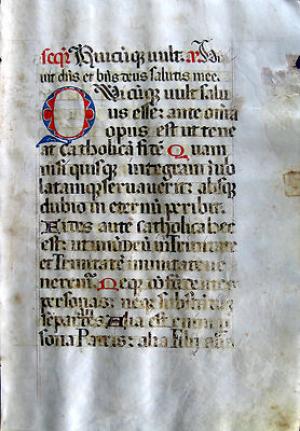 seqr Quicuq vult. a. Vi
uit dns et bns deus salutis mee.
Quicuq vult salu
us esse: ante omia
opus est ut tene
at catholica fide. Quam
nisi quisq integram inuio
latamq seruauerit: absq
dubio in eternu peribit.
Fides aute catholica hec
est: ut unu deu in trinitate
et trinitate in unitate ue
neremur. Neq confudentes
personas: neq substantia
separantes. Alia est enim per
sona Patris: alia Filii alia